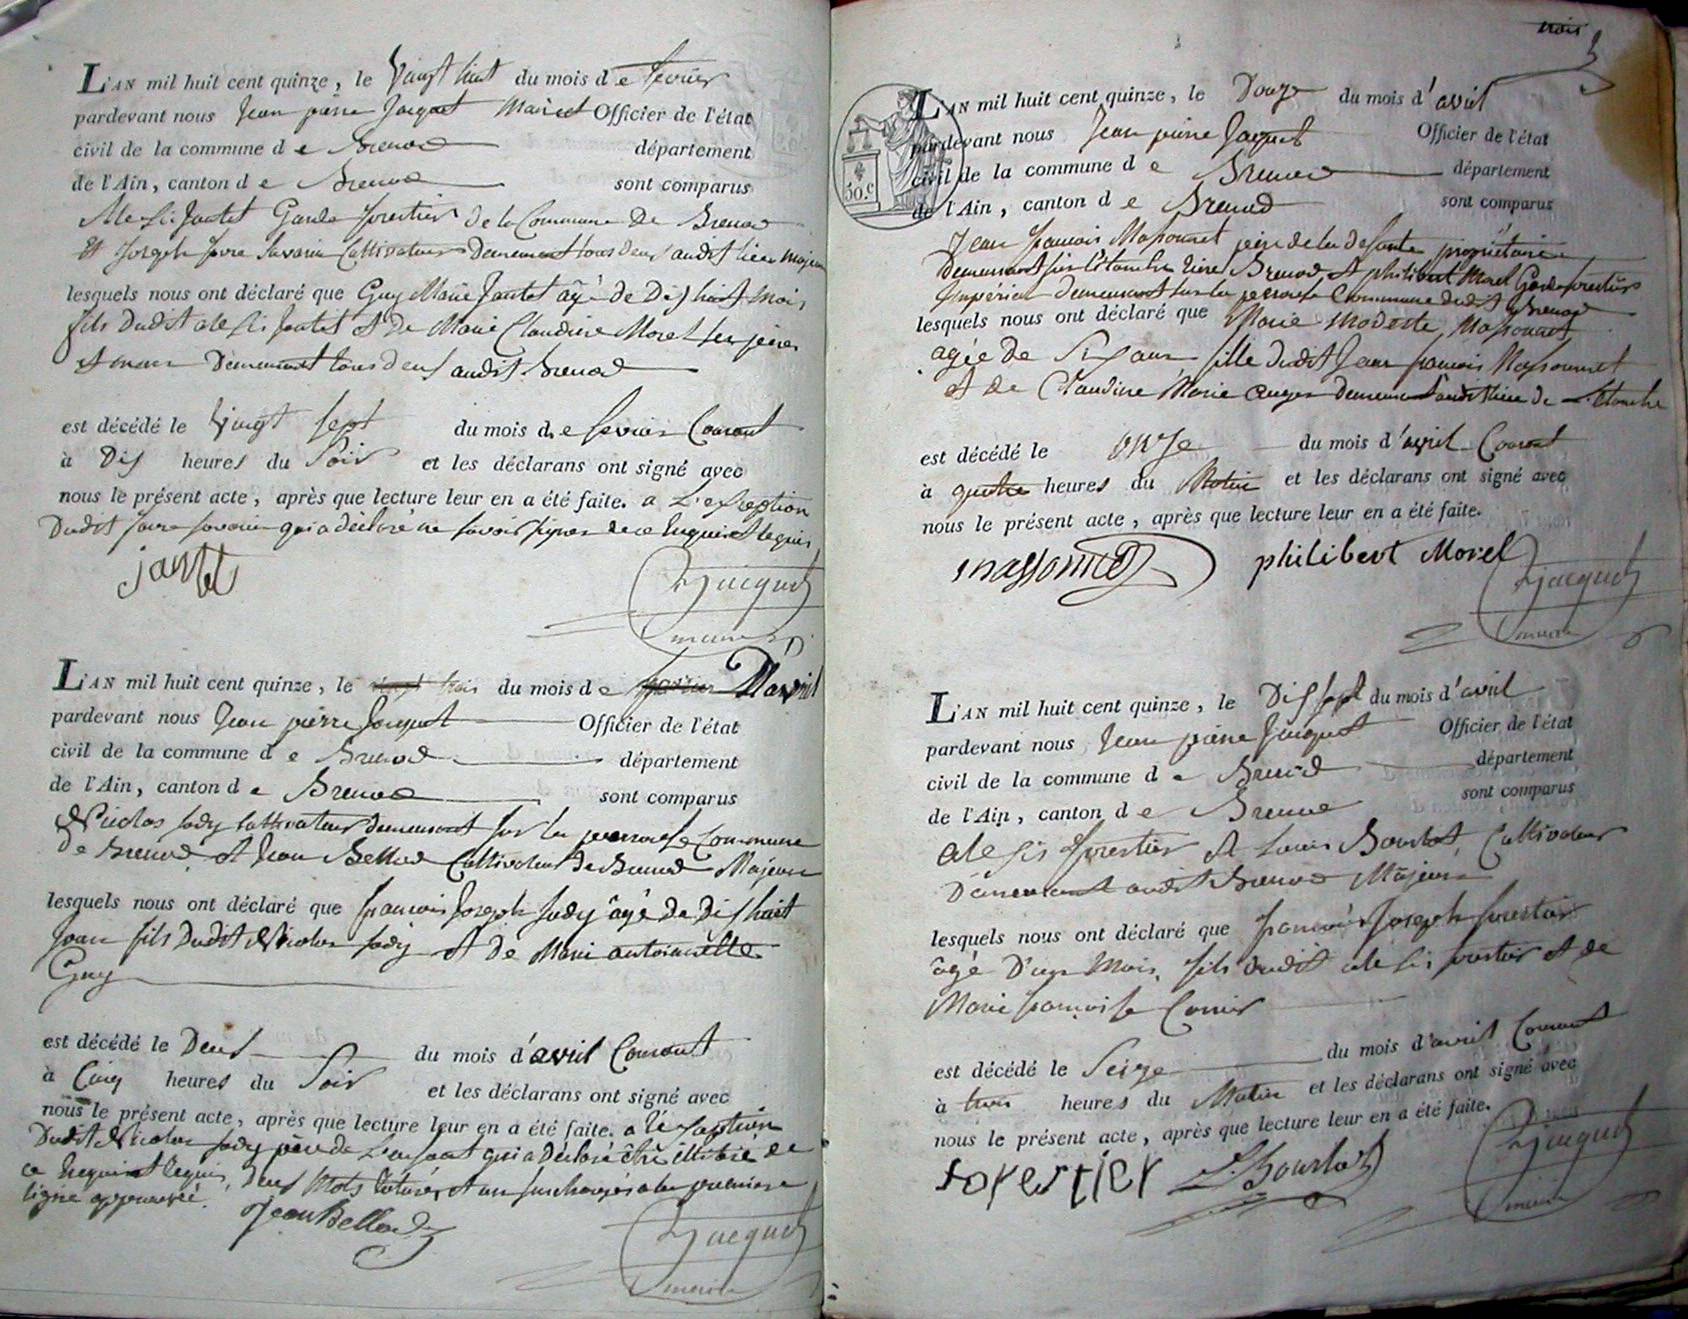 L'AN mil huit cent quinze, le Vingt huit du mois de fevrier
pardevant nous Jean pierre Jacquet Maire et Officier de l'état
civil de la commune de Brenod département
de l'Ain, canton de Brenod sont comparus
Alexis Jantet Garde forestier de la Commune de Brenod
Et Joseph favre Savarin Cultivateur Demeurant tous deux audit lieu majeurs
lesquels nous ont déclaré que Guy Marie Jantet âgé de Dix huit mois
fils Dudit alexis Jantet et De Marie Claudine Morel ses pere
et mere Demeurant tous deux audit Brenod
est décédé le Vingt sept du mois de fevrier Courant
à Dix heures du Soir et les déclarans ont signé avec
nous le présent acte, après que lecture leur en a été faite. a L'exception
Dudit favre savarin qui a déclaré ne savoir signer de ce Enquis et requis
jantet
Jacquet
maire
L'AN mil huit cent quinze, le vingt trois du mois de fevrier D'avril
pardevant nous Jean pierre Jacquet Officier de l'état
civil de la commune de Brenod département
de l'Ain, canton de Brenod sont comparus
Nicolas Jady Cultivateur demeurant sur la perrouse Commune
de Brenod et Jean Bellod Cultivateur De Brenod Majeurs
lesquels nous ont déclaré que francois Joseph Jady âgé De Dix huit
Jours fils Dudit Nicolas Jady et De Marie antoinette
Guy
est décédé le Deux du mois d'avril Courant
à Cinq heures du Soir et les déclarans ont signé avec
nous le présent acte, après que lecture leur en a été faite. a l'exception
Dudit Nicolas Jady père de L'enfant qui a Déclaré être illitéré de
ce Enquis et requis, deux Mots raturés et un surchargé a la premiere
ligne approuvée.
Jean Bellod
Jacquet
maire
trois
3
50.c
L'AN mil huit cent quinze, le Douze du mois d'avril
pardevant nous Jean pierre Jacquet Officier de l'état
civil de la commune de Brenod département
de l'Ain, canton de Brenod sont comparus
Jean francois Massonnet père de la defunte propriétaire
Demeurant sur Létanche Rière Brenod et philibert Morel Garde forestier
Impérial demeurant sur la perrouse Commune dudit Brenod
lesquels nous ont déclaré que Marie Modeste Massonnet
agée De Six ans fille dudit Jean francois Massonnet
et de Claudine Marie Auger demeurant audit lieu de Létanche
est décédé le onze du mois d'avril Courant
à quatre heures du Matin et les déclarans ont signé avec
nous le présent acte, après que lecture leur en a été faite.
Massonnet philibert Morel
Jacquet
maire
L'AN mil huit cent quinze, le Dix sept du mois d'avril
pardevant nous Jean pierre Jacquet Officier de l'état
civil de la commune de Brenod département
de l'Ain, canton de Brenod sont comparus
alexis forestier et Louis Bourbot, Cultivateur
Demeurant audit Brenod Majeurs
lesquels nous ont déclaré que francois Joseph forestier
âgé D'un Mois, fils dudit alexis forestier et de
Marie francoise
est décédé le Seize du mois d'avril Courant
à trois heures du Matin et les déclarans ont signé avec
nous le présent acte, après que lecture leur en a été faite.
forestier L. Bourbot
Jacquet
maire